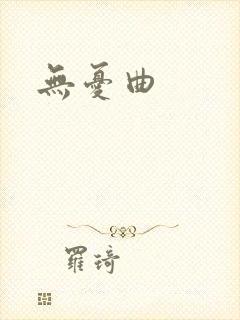 無憂曲
羅琦